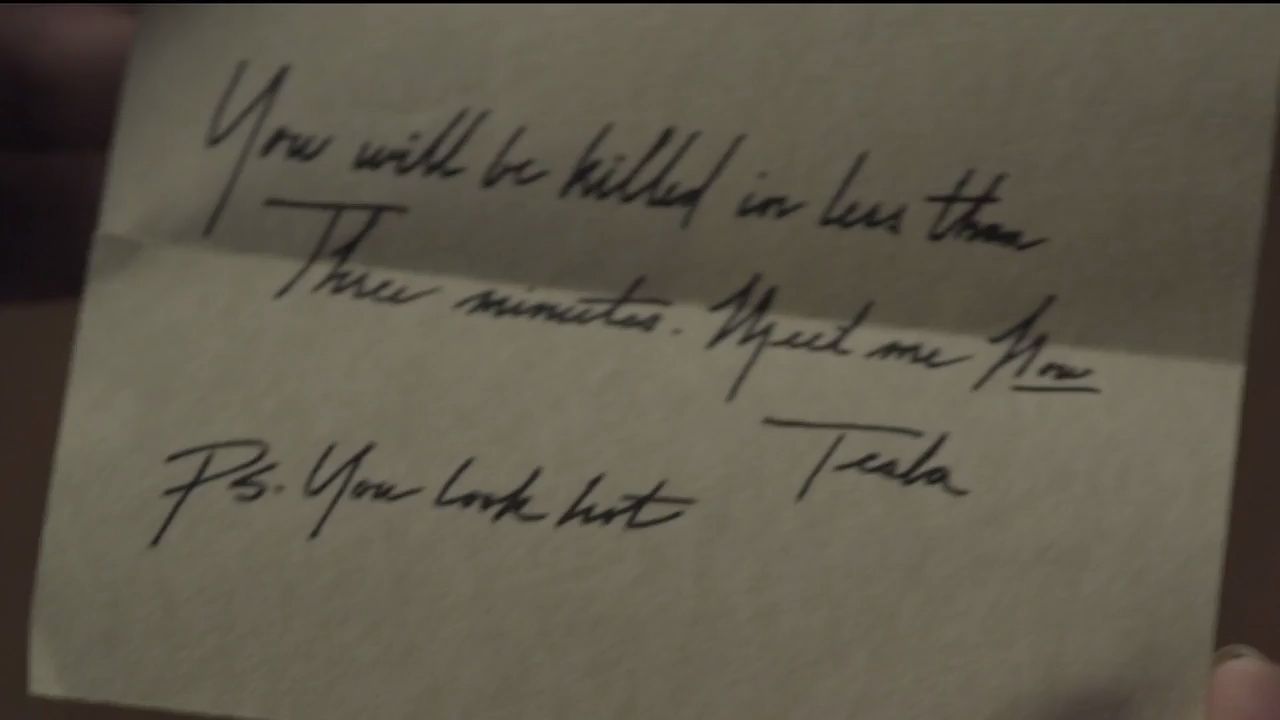 You will be killed in less than
Three minutes. Meet me Now
Tesla
Ps. You look hot